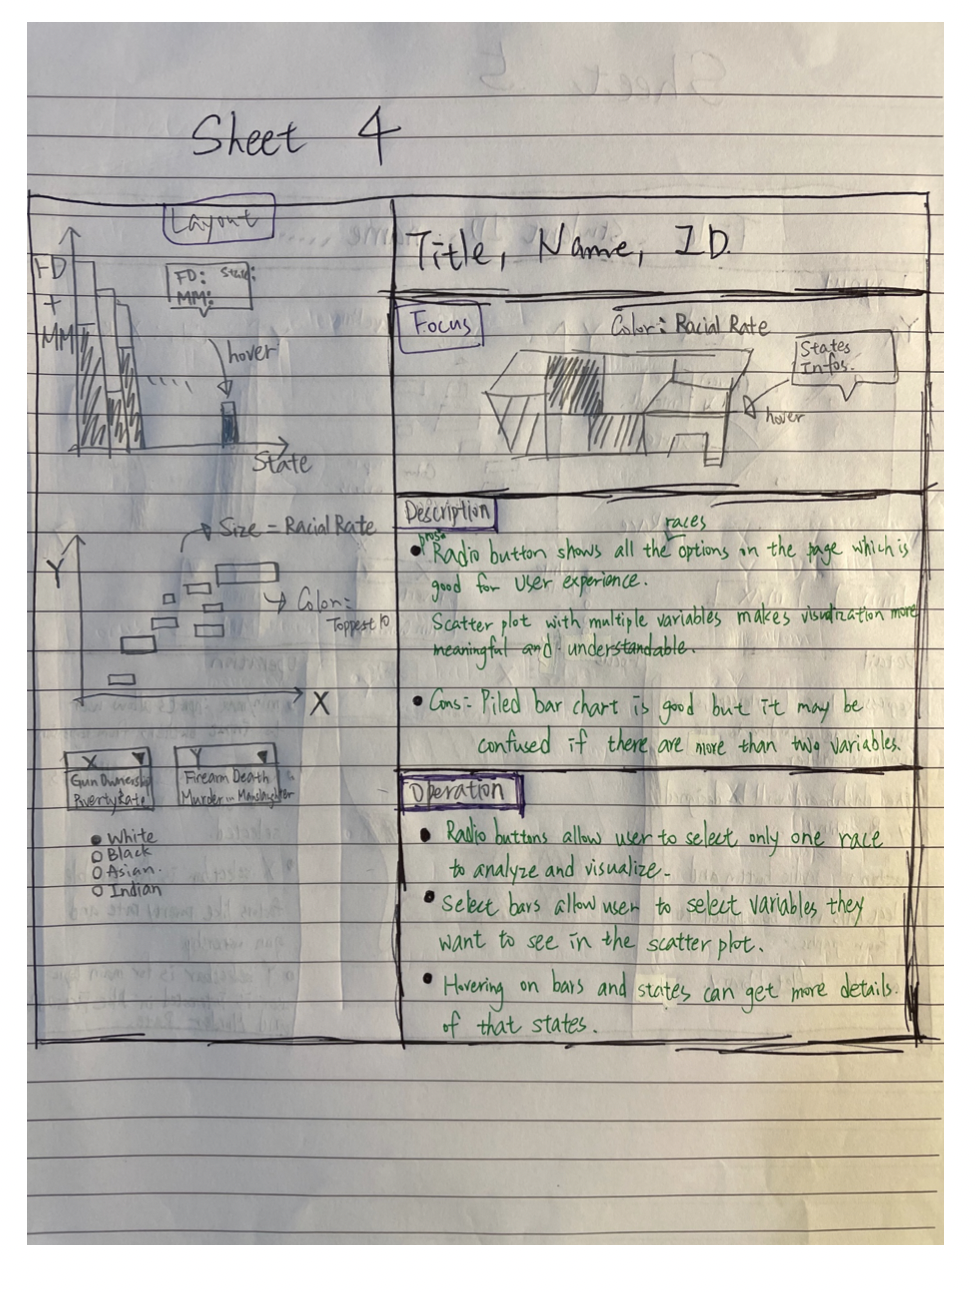 Sheet 4
Layout
FD
+
MM
FD: State:
MM:
hover
State
Size = Racial Rate
Y
Color:
Toppest 10
X
X
Gun Ownership
PovertyRate
Y
Firearm Death
Murder Manslaughter
White
Black
Asian.
Indian
Title, Name, ID.
Focus
Color: Racial Rate
States
Infos.
hover
Description
pros:
races
Radio button shows all the options in the page which is
good for user experience.
Scatter plot with multiple variables makes visulization more
meaningful and understandable.
Cons: Piled bar chart is good but it may be
confused if there are more than two variables.
Operation
Radio buttons allow user to select only one race
to analyze and visualize.
Select bars allow user to select variables they
want to see in the scatter plot.
Hovering on bars and states can get more details
of that states.